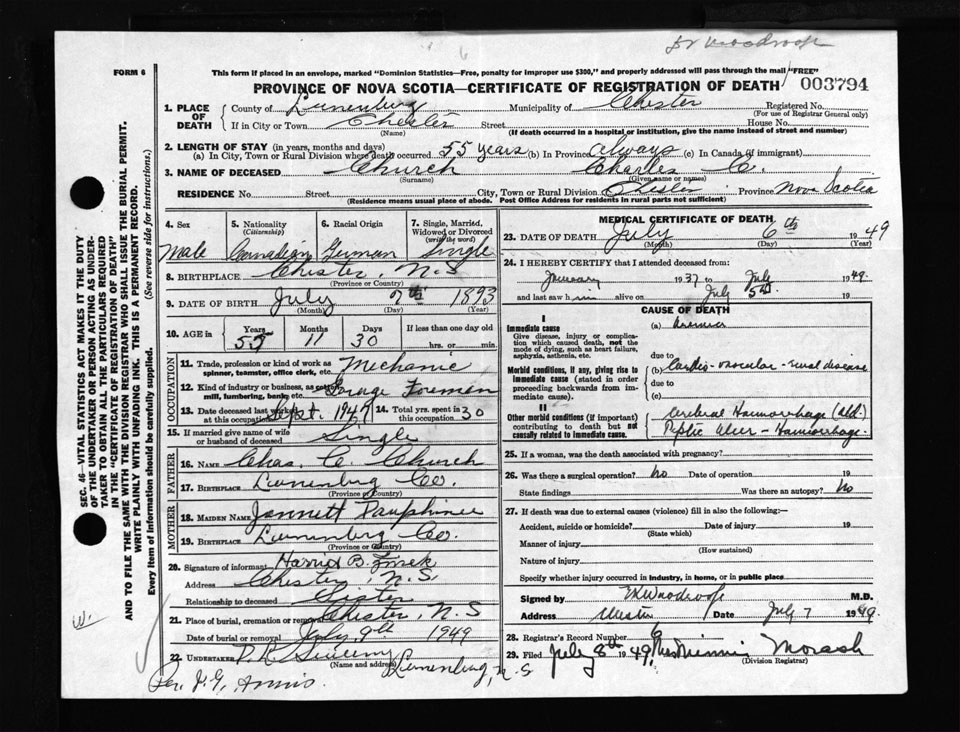 Dr Woodroofe
FORM 6
This form if placed in an envelope, marked "Dominion Statistics—Free, penalty for improper use $300," and properly addressed will pass through the mail "FREE"
PROVINCE OF NOVA SCOTIA—CERTIFICATE OF REGISTRATION OF DEATH
003794
1. PLACE OF DEATH
County of Lunenburg Municipality of Chester Registered No.
(For use of Registrar General only)
If in City or Town Chester Street House No.
(Name) (If death occurred in a hospital or institution, give the name instead of street and number)
2. LENGTH OF STAY (in years, months and days)
(a) In City, Town or Rural Division where death occurred 55 years (b) In Province always (c) In Canada (if immigrant)
3. NAME OF DECEASED Church Charles C.
(Surname) (Given name or names)
RESIDENCE No. Street City, Town or Rural Division Chester Province Nova Scotia
(Residence means usual place of abode. Post Office Address for residents in rural parts not sufficient)
4. Sex 5. Nationality (Citizenship) 6. Racial Origin 7. Single, Married, Widowed or Divorced (write the word)
Male Canadian German Single
8. BIRTHPLACE Chester, N.S
(Province or Country)
9. DATE OF BIRTH July 7th 1893
(Month) (Day) (Year)
10. AGE in Years Months Days If less than one day old
55 11 30 hrs. or min.
OCCUPATION
11. Trade, profession or kind of work as spinner, teamster, office clerk, etc. Mechanic
12. Kind of industry or business, as cotton mill, lumbering, bank, etc. Garage Foreman
13. Date deceased last worked at this occupation Sept. 1947 14. Total yrs. spent in this occupation 30
15. If married give name of wife or husband of deceased Single
FATHER
16. NAME Chas. C. Church
17. BIRTHPLACE Lunenburg Co.
(Province or Country)
MOTHER
18. MAIDEN NAME Jannett Dauphinee
19. BIRTHPLACE Lunenburg Co.
(Province or Country)
20. Signature of informant B.
Address Chester, N.S.
Relationship to deceased Sister
21. Place of burial, cremation or removal Chester, N.S
Date of burial or removal July 9th 1949
22. UNDERTAKER Lunenburg, N.S
(Name and address)
Per. J. G.
MEDICAL CERTIFICATE OF DEATH
23. DATE OF DEATH July 6th 1949
(Month) (Day) (Year)
24. I HEREBY CERTIFY that I attended deceased from:
January 1937 to July 1949.
and last saw him alive on July 5th 19
CAUSE OF DEATH
I
Immediate cause
Give disease, injury or complication which caused death, not the mode of dying, such as heart failure, asphyxia, asthenia, etc.
(a) uraemia
due to
Morbid conditions, if any, giving rise to immediate cause (stated in order proceeding backwards from immediate cause).
(b) Cardio-vascular-renal disease
due to
(c)
II
Other morbid conditions (if important) contributing to death but not causally related to immediate cause.
Cerebral Haemorrhage (old).
Peptic Ulcer - Haemorrhage.
25. If a woman, was the death associated with pregnancy?
26. Was there a surgical operation? No Date of operation 19
State findings Was there an autopsy? No
27. If death was due to external causes (violence) fill in also the following:—
Accident, suicide or homicide? Date of injury 19
(State which)
Manner of injury
(How sustained)
Nature of injury
Specify whether injury occurred in industry, in home, or in public place
Signed by Woodroofe M.D.
Address Chester Date July 7 1949.
28. Registrar's Record Number 6
29. Filed July 8th 1949 Morash
(Division Registrar)
SEC. 46—VITAL STATISTICS ACT MAKES IT THE DUTY
OF THE UNDERTAKER OR PERSON ACTING AS UNDERTAKER TO OBTAIN ALL THE PARTICULARS REQUIRED
IN THE "CERTIFICATE OF REGISTRATION OF DEATH"
AND TO FILE THE SAME WITH THE DIVISION REGISTRAR WHO SHALL ISSUE THE BURIAL PERMIT.
WRITE PLAINLY WITH UNFADING INK. THIS IS A PERMANENT RECORD.
Every item of information should be carefully supplied. (See reverse side for instructions.)